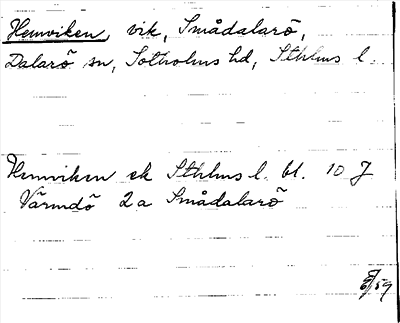 Hemviken, vik, Smådalarö,
Dalarö sn, Sotholms hd, Sthlms l.
Hemviken ek Sthlms l. bl. 10 J
Värmdö 2a Smådalarö
59